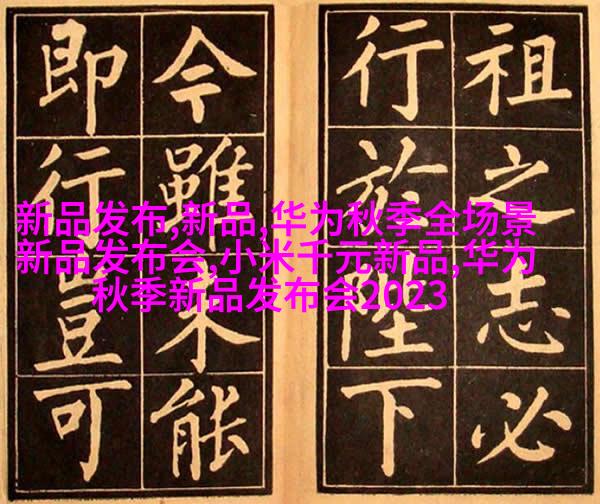 祖之志必
行於陛下
今雖未能
即行豈可
新品发布,新品,华为秋季全场景
新品发布会,小米千元新品,华为
秋季新品发布会2023